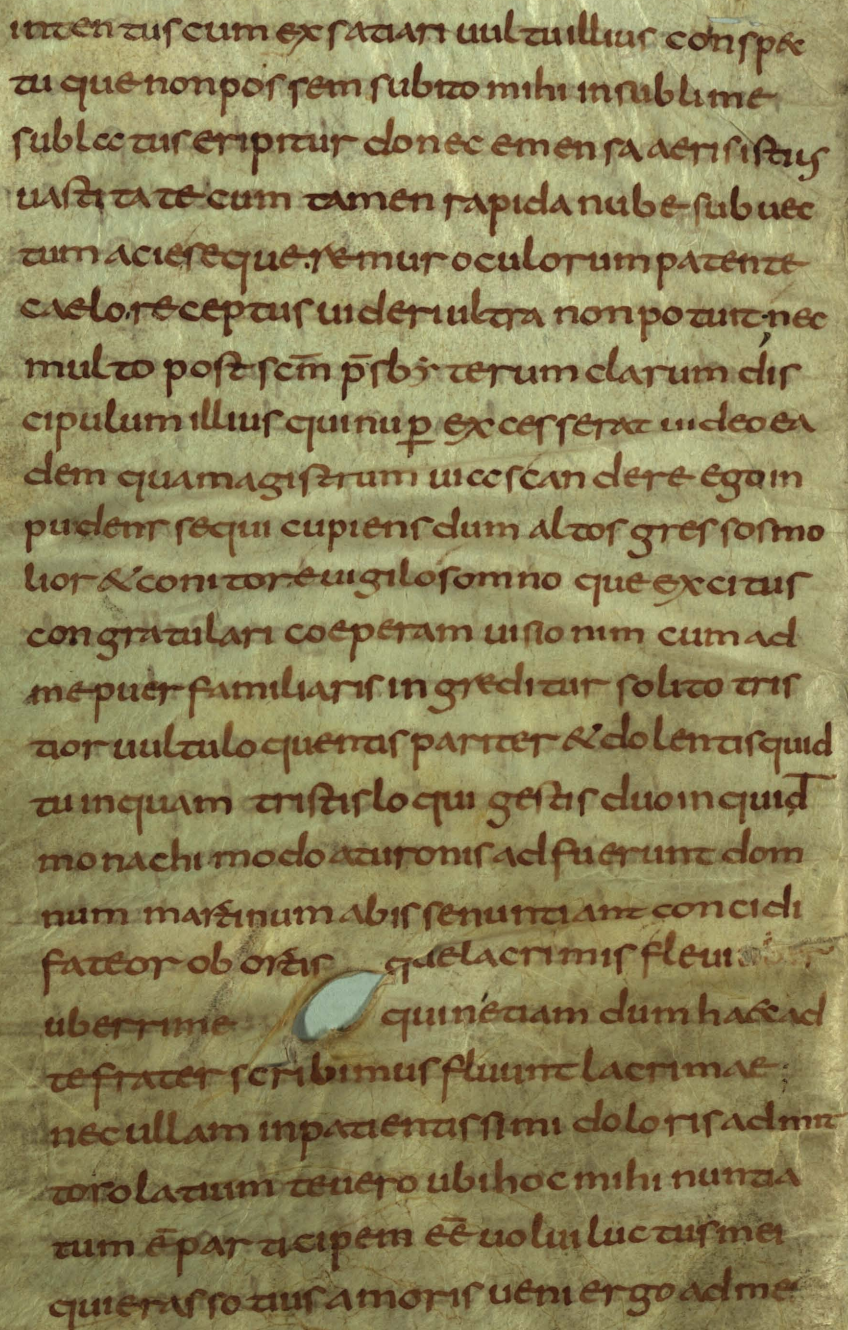 intentus cum exsatiari uultu illius conspec
tuque non possem subito mihi in sublime
sublectus eripitur donec emensa aeris istius
uastitate cum tamen rapida nube subuec
tum acie sequeremur oculorum patente
caelo receptus uideri ultra non potuit; nec
multo post scm̄ p̄sbyterum clarum dis
cipulum illius qui nuꝑ excesserat uideo ea
dem qua magistrum uia ascandere ego in
pudens sequi cupiens dum altos gressos mo
lior & conitor euigilo somnoque excitus
congratulari coeperam uisionim cum ad
me puer familiaris ingreditur solito tris
tior uultu loquentis pariter & dolentis quid
tu inquam tristis loqui gestis duo inquid
monachi modo a turonis adfuerunt dom
num martinum abisse nuntiant concidi
fateor obortisque lacrimis fleui
uberrime quin etiam dum haec ad
te frater scribimus fluunt lacrimae;
nec ullam inpatientissimi doloris admit
to solatium te uero ubi hoc mihi nuntia
tum ē participem eē uolui luctus mei
qui eras sotius amoris ueni ergo ad me